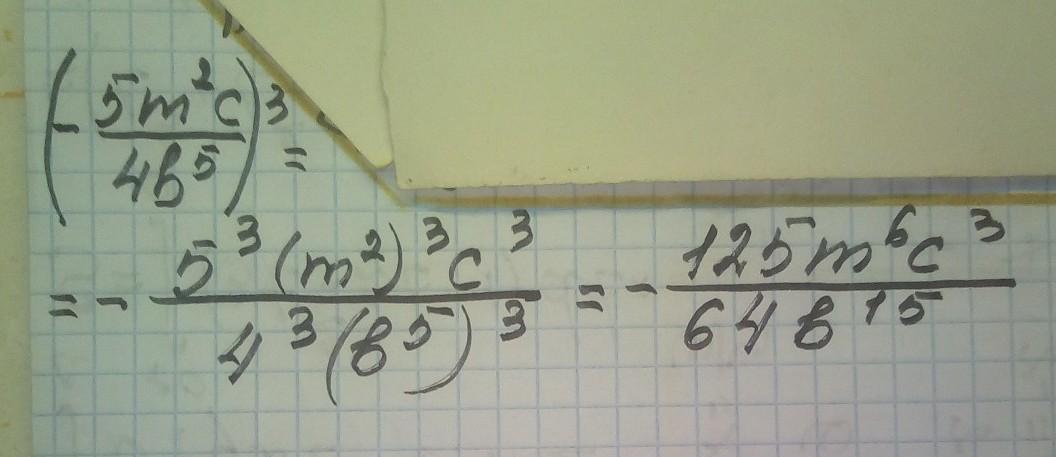 (- 5m²c / 4b⁵)³ =
= - 5³(m²)³c³ / 4³(b⁵)³ = - 125m⁶c³ / 64b¹⁵